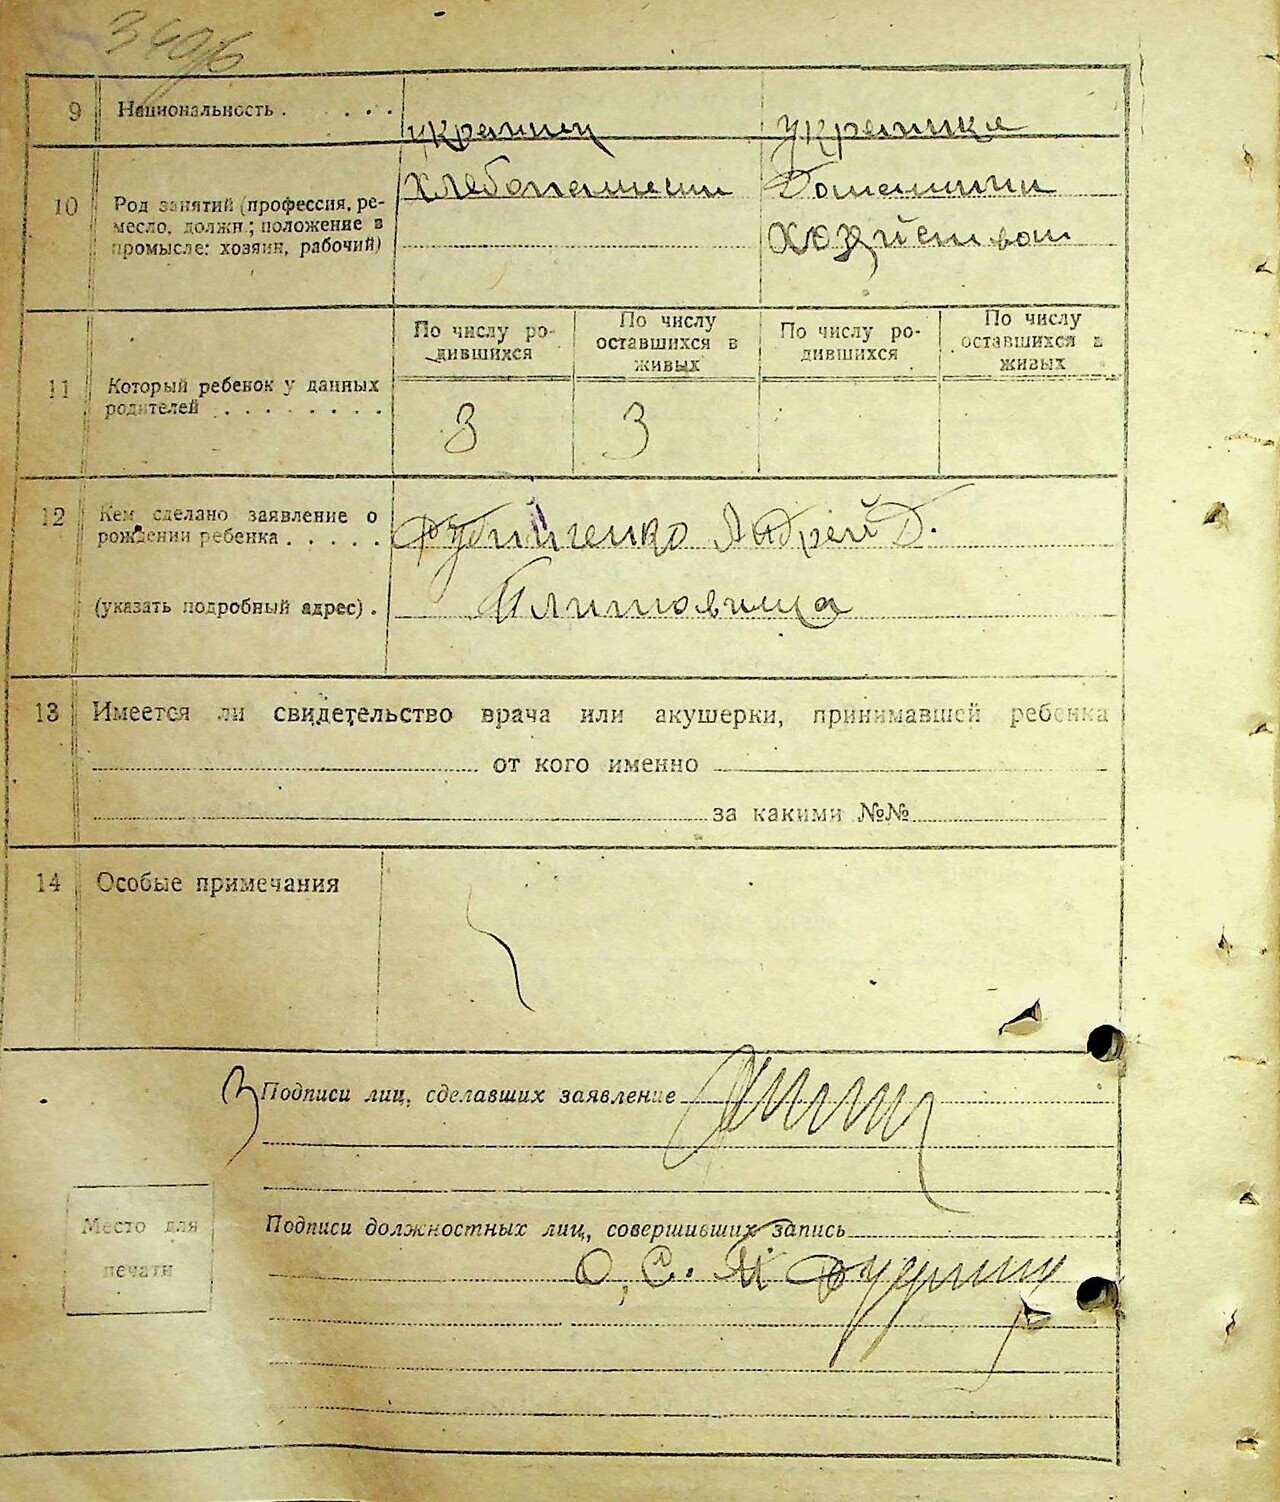 340/б
9 Национальность . . . . .
украинец украинка
хлебопашец Домашним
10 Род занятий (профессия, ре-
месло, должн.; положение в
промысле: хозяин, рабочий)
хозяйством
По числу ро-
дившихся
По числу
оставшихся в
живых
По числу ро-
дившихся
По числу
оставшихся в
живых
11 Который ребенок у данных
родителей . . . . . . . .
3 3
12 Кем сделано заявление о
рождении ребенка . . . . .
Андрей Д.
(указать подробный адрес) .
13 Имеется ли свидетельство врача или акушерки, принимавшей ребенка
от кого именно
за какими №№
14 Особые примечания
Подписи лиц, сделавших заявление
Место для
печати
Подписи должностных лиц, совершивших запись